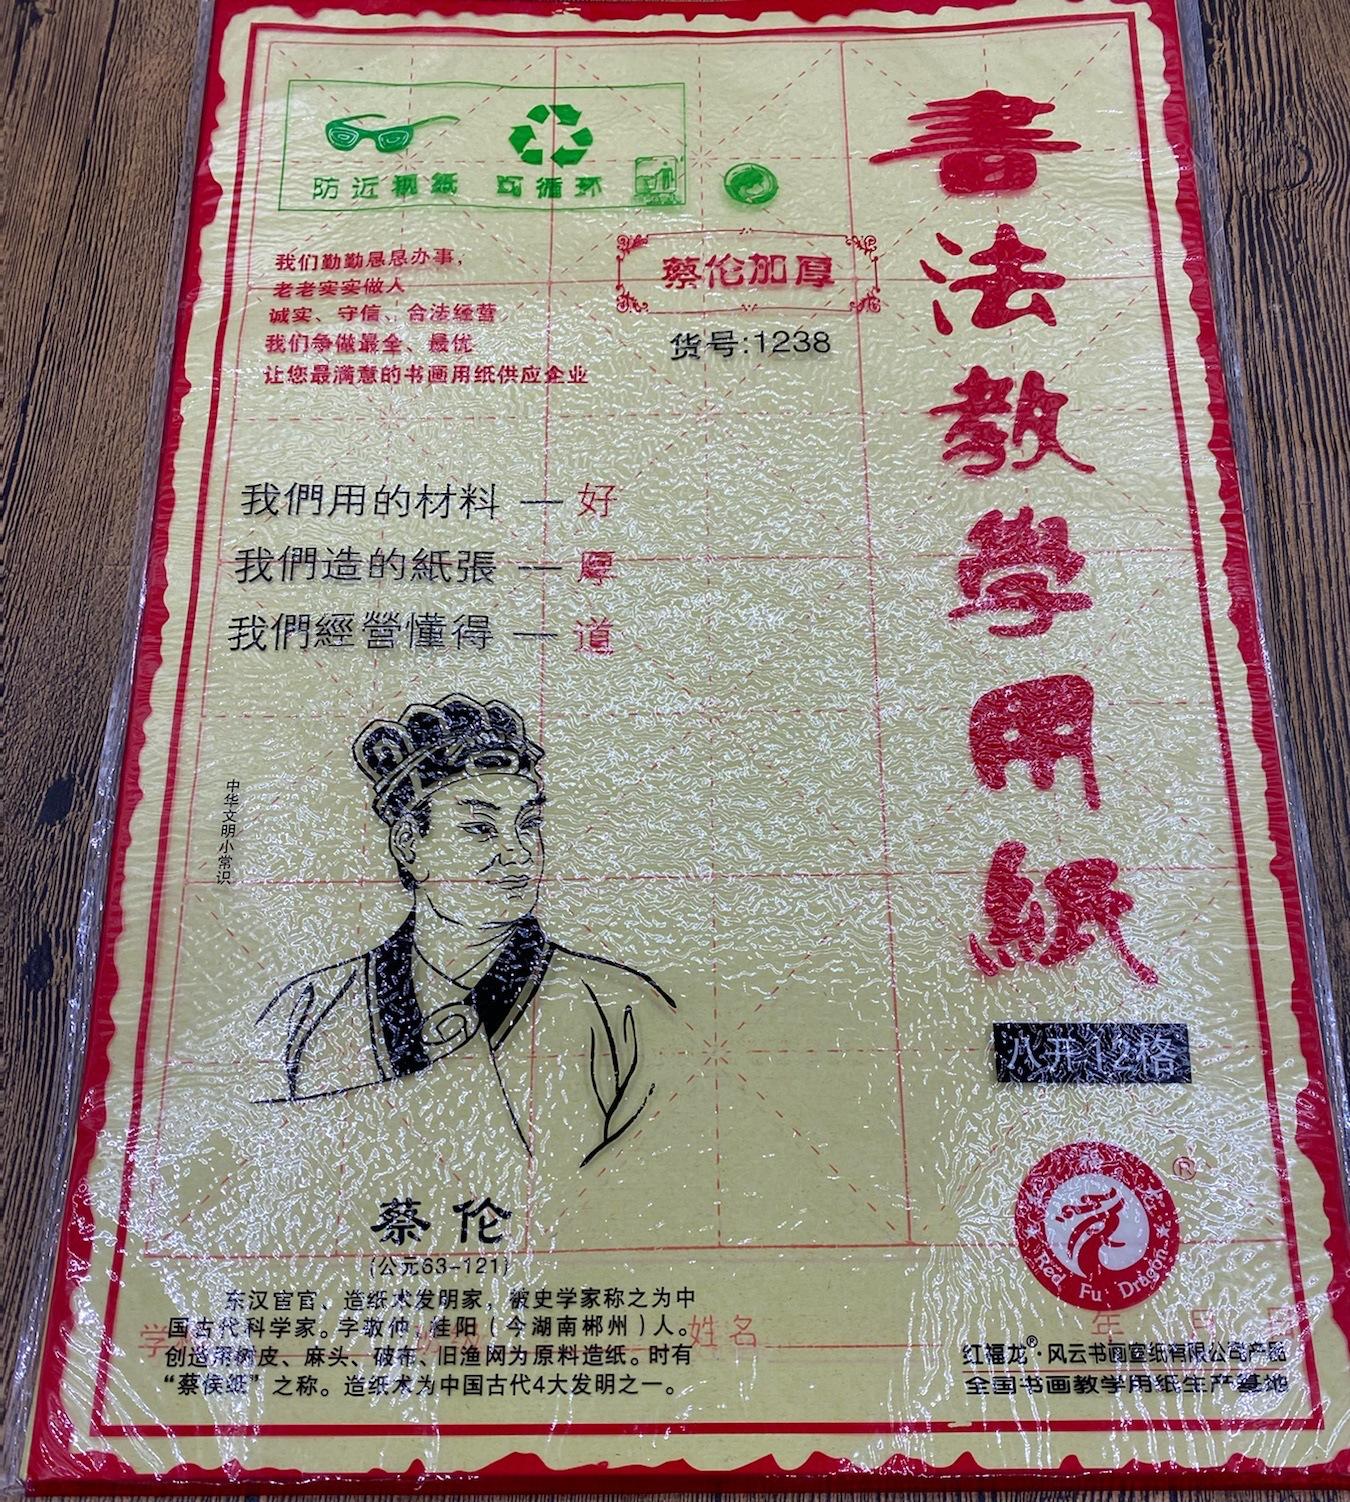 防近视纸 可循环
書法教學用紙
蔡伦加厚
货号:1238
我们勤勤恳恳办事，
老老实实做人
诚实、守信、合法经营
我们争做最全、最优
让您最满意的书画用纸供应企业
我們用的材料 — 好
我們造的紙張 — 厚
我們經營懂得 — 道
中华文明小常识
八开12格
蔡伦
(公元63-121)
东汉宦官、造纸术发明家，被史学家称之为中
国古代科学家。字敬仲，桂阳（今湖南郴州）人。
创造用树皮、麻头、破布、旧渔网为原料造纸。时有
“蔡侯纸”之称。造纸术为中国古代4大发明之一。
学 姓名
年 月 日
Red Fu Dragon
®
红福龙®·风云书画宣纸有限公司产品
全国书画教学用纸生产基地